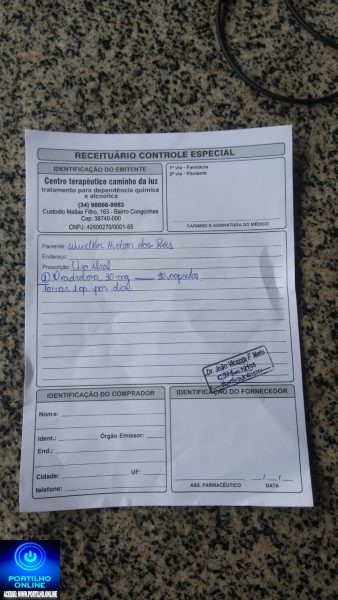 RECEITUÁRIO CONTROLE ESPECIAL
IDENTIFICAÇÃO DO EMITENTE
Centro terapêutico caminho da luz
tratamento para dependência química
e alcoolica
(34) 98866-6663
Custódio Matias Filho, 163 - Bairro Congonhas
Cep: 38740-000
CNPJ: 42500270/0001-55
1ª via - Farmácia
2ª via - Paciente
CARIMBO E ASSINATURA DO MÉDICO
Paciente: Hudson dos Reis
Endereço:
Prescrição: Uso Oral
30 mg 30 capsulas
Tomar 1 cp por dia
Dr. João Vicente F. Neto
IDENTIFICAÇÃO DO COMPRADOR
Nome:
Ident.: Órgão Emissor:
End.:
Cidade: UF:
telefone:
IDENTIFICAÇÃO DO FORNECEDOR
ASS. FARMACÊUTICO DATA
PORTILHO
ONLINE
ACESSE: WWW.PORTILHO.ONLINE